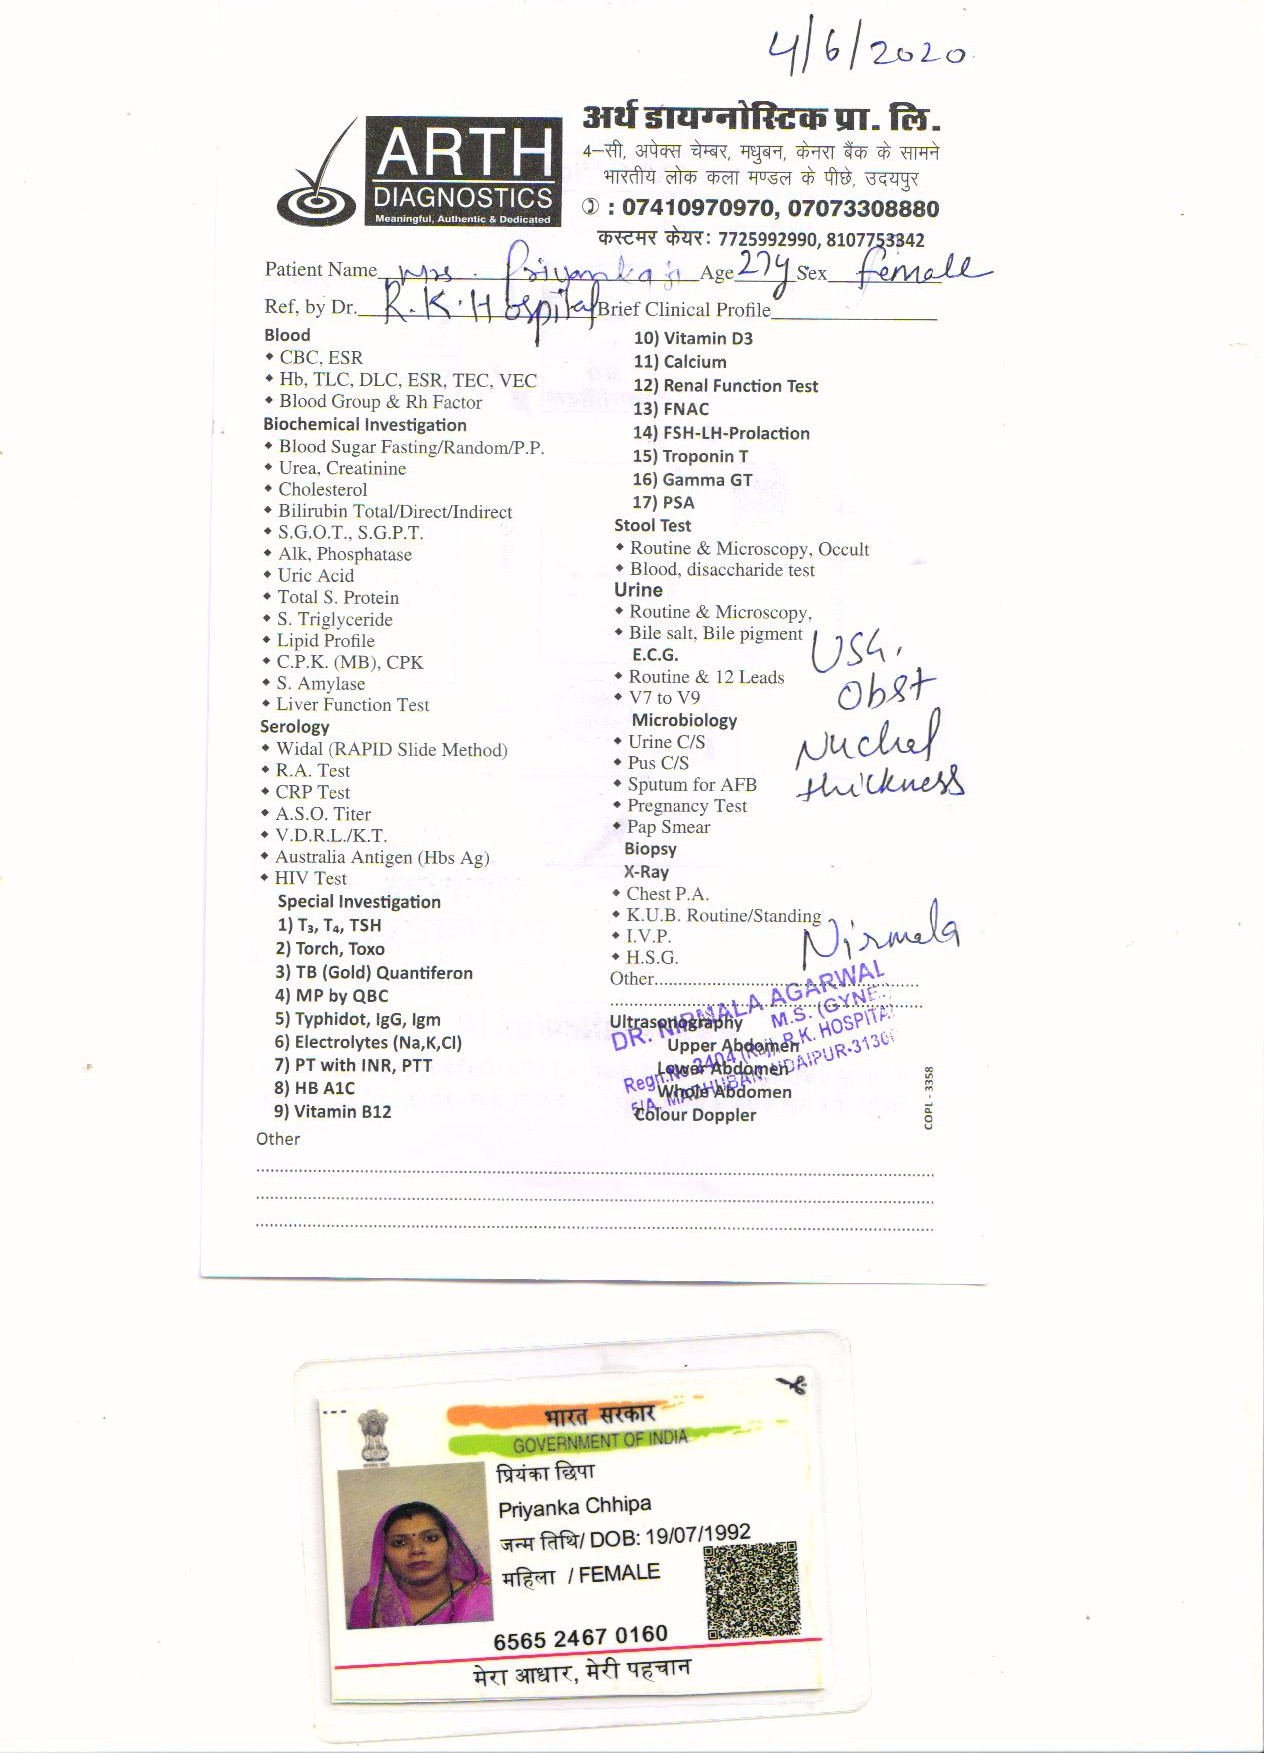 4/6/2020
अर्थ डायग्नोस्टिक प्रा. लि.
ARTH
DIAGNOSTICS
Meaningful, Authentic & Dedicated
4–सी, अपेक्स चेम्बर, मधुबन, केनरा बैंक के सामने
भारतीय लोक कला मण्डल के पीछे, उदयपुर
: 07410970970, 07073308880
कस्टमर केयर: 7725992990, 8107753342
Patient Name Mrs. Priyanka ji Age 27y Sex female
Ref, by Dr. R.K. Hospital Brief Clinical Profile
Blood
CBC, ESR
Hb, TLC, DLC, ESR, TEC, VEC
Blood Group & Rh Factor
Biochemical Investigation
Blood Sugar Fasting/Random/P.P.
Urea, Creatinine
Cholesterol
Bilirubin Total/Direct/Indirect
S.G.O.T., S.G.P.T.
Alk, Phosphatase
Uric Acid
Total S. Protein
S. Triglyceride
Lipid Profile
C.P.K. (MB), CPK
S. Amylase
Liver Function Test
Serology
Widal (RAPID Slide Method)
R.A. Test
CRP Test
A.S.O. Titer
V.D.R.L./K.T.
Australia Antigen (Hbs Ag)
HIV Test
Special Investigation
1) T₃, T₄, TSH
2) Torch, Toxo
3) TB (Gold) Quantiferon
4) MP by QBC
5) Typhidot, IgG, Igm
6) Electrolytes (Na,K,Cl)
7) PT with INR, PTT
8) HB A1C
9) Vitamin B12
Other
10) Vitamin D3
11) Calcium
12) Renal Function Test
13) FNAC
14) FSH-LH-Prolaction
15) Troponin T
16) Gamma GT
17) PSA
Stool Test
Routine & Microscopy, Occult
Blood, disaccharide test
Urine
Routine & Microscopy,
Bile salt, Bile pigment
E.C.G.
Routine & 12 Leads
V7 to V9
Microbiology
Urine C/S
Pus C/S
Sputum for AFB
Pregnancy Test
Pap Smear
Biopsy
X-Ray
Chest P.A.
K.U.B. Routine/Standing
I.V.P.
H.S.G.
Other
Ultrasonography
Upper Abdomen
Lower Abdomen
Whole Abdomen
Colour Doppler
USG.
Obst
Nuchal
thickness
Nirmala
DR. NIRMALA AGARWAL
M.S. (GYNE.
Regn.No 2404 (Raj). R.K. HOSPITA
5/A, MADHUBAN, UDAIPUR-3130
COPL - 3358
भारत सरकार
GOVERNMENT OF INDIA
प्रियंका छिपा
Priyanka Chhipa
जन्म तिथि/ DOB: 19/07/1992
महिला / FEMALE
6565 2467 0160
मेरा आधार, मेरी पहचान